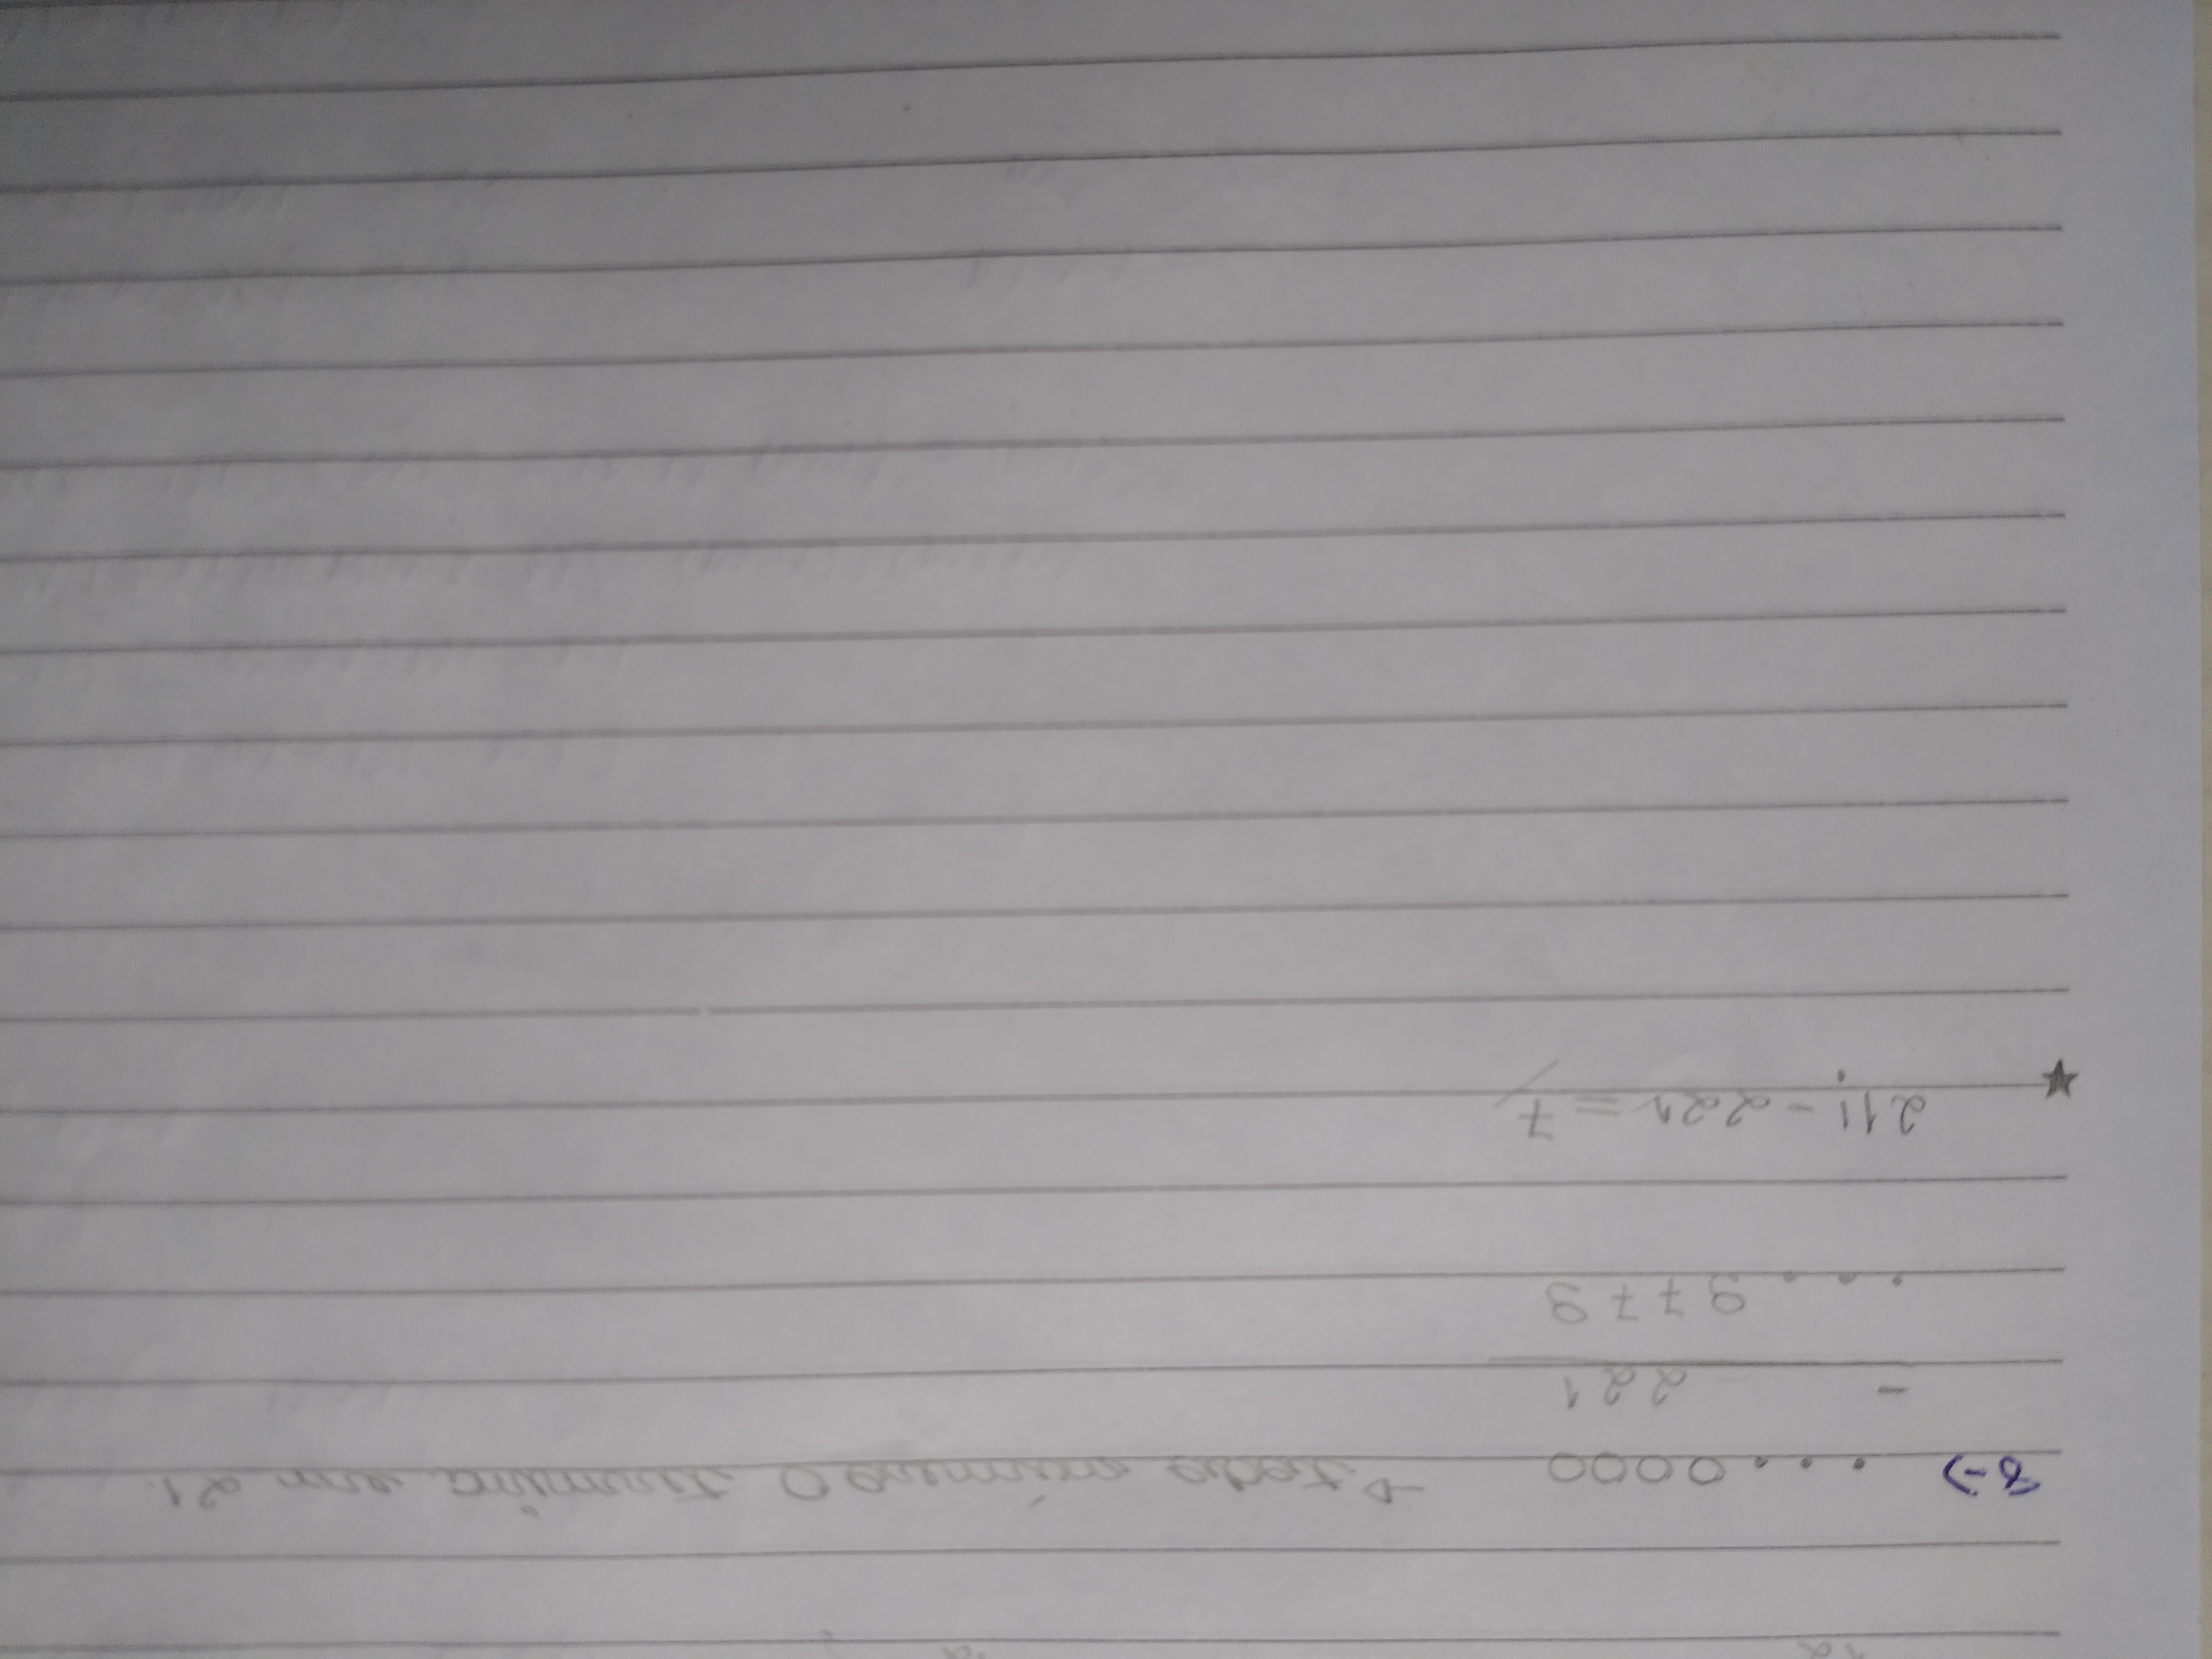 8→ ...0000 → todo número 0 termina em 21.
- 221
...9779
21! - 221 = 7